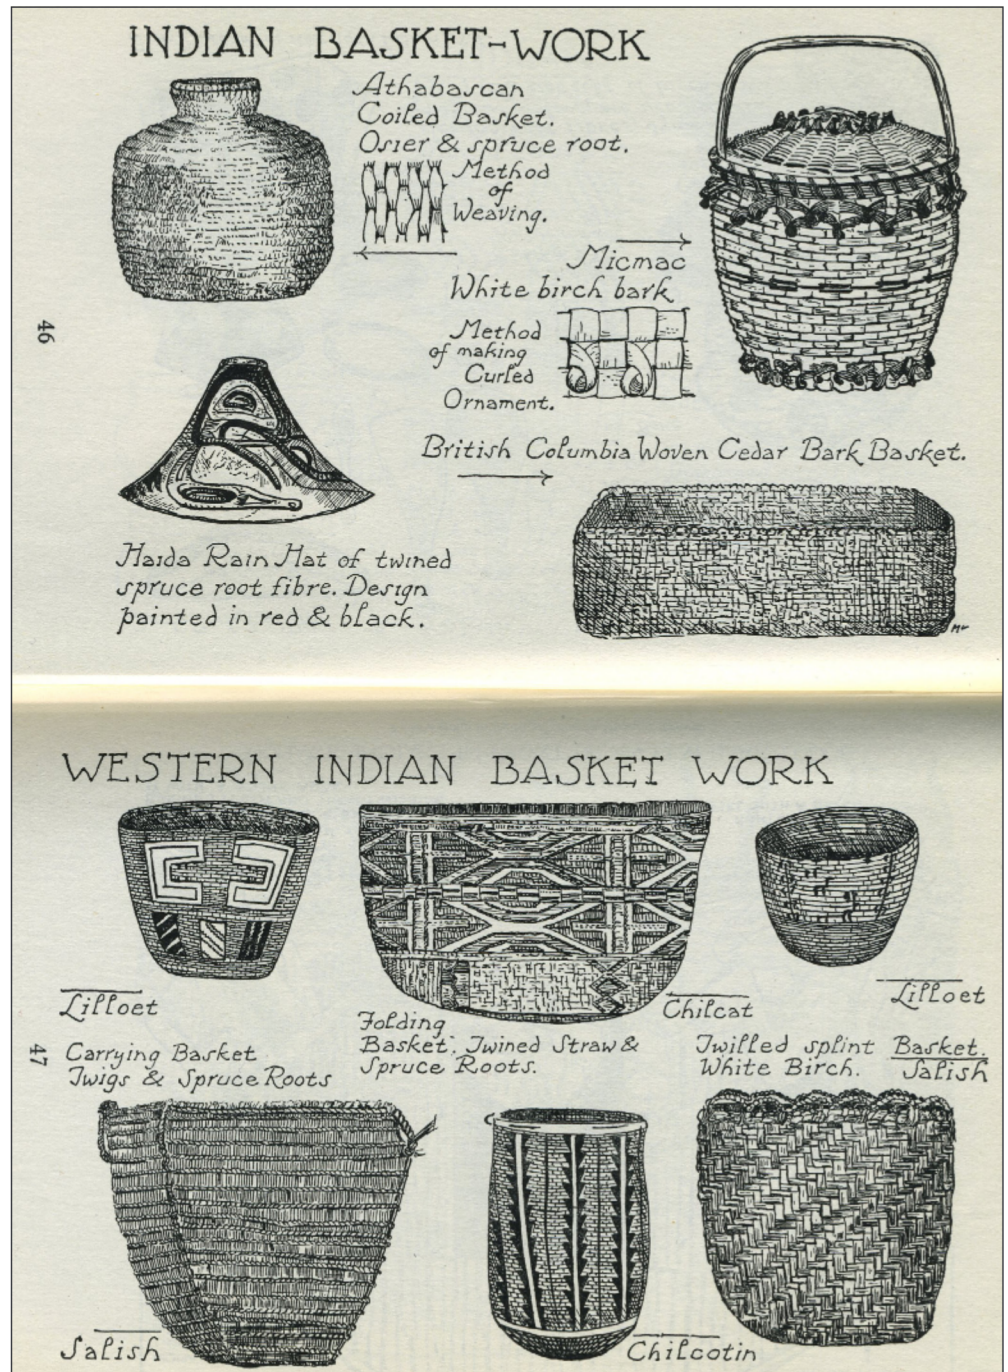 INDIAN BASKET-WORK
Athabascan
Coiled Basket.
Osier & spruce root.
Method
of
Weaving.
Micmac
White birch bark
Method
of making
Curled
Ornament.
46
British Columbia Woven Cedar Bark Basket.
Haida Rain Hat of twined
spruce root fibre. Design
painted in red & black.
WESTERN INDIAN BASKET WORK
Lilloet
Chilcat
Lilloet
Folding
Basket. Twined Straw &
Spruce Roots.
47
Carrying Basket
Twigs & Spruce Roots
Twilled splint Basket.
White Birch. Salish
Salish
Chilcotin